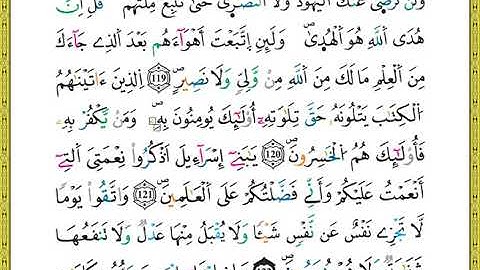 وَلَن تَرْضَىٰ عَنكَ اَ۬لْيَهُودُ وَلَا اَ۬لنَّصَٰرَىٰ حَتَّىٰ تَتَّبِعَ مِلَّتَهُمْ قُلِ اِنَّ
هُدَى اَ۬للَّهِ هُوَ اَ۬لْهُدَىٰ وَلَئِنِ اِ۪تَّبَعْتَ أَهْوَآءَهُم بَعْدَ اَ۬لذِے جَآءَكَ
مِنَ اَ۬لْعِلْمِ مَا لَكَ مِنَ اَ۬للَّهِ مِنْ وَّلِيّٖ وَلَا نَصِيرٍ 119 اِ۬لذِينَ ءَاتَيْنَٰهُمُ
اُ۬لْكِتَٰبَ يَتْلُونَهُۥ حَقَّ تِلَٰوَتِهِۦٓ أُوْلَٰٓئِكَ يُومِنُونَ بِهِۦ وَمَنْ يَّكْفُرْ بِهِۦ
فَأُوْلَٰٓئِكَ هُمُ اُ۬لْخَٰسِرُونَ 120 يَٰبَنِےٓ إِسْرَآءِيلَ اَ۟ذْكُرُواْ نِعْمَتِيَ اَ۬لتِےٓ
أَنْعَمْتُ عَلَيْكُمْ وَأَنِّے فَضَّلْتُكُمْ عَلَى اَ۬لْعَٰلَمِينَ 121 وَاتَّقُواْ يَوْماٗ
لَّا تَجْزِے نَفْسٌ عَن نَّفْسٖ شَيْـٔاٗ وَلَا يُقْبَلُ مِنْهَا عَدْلٞ وَلَا تَنفَعُهَا